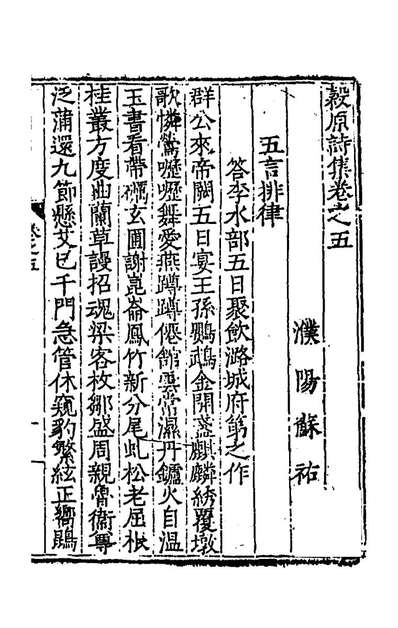 穀原詩集卷之五
濮陽蘇祐
五言排律
答李水部五日聚飲潞城府第之作
群公來帝闕五日宴王孫鸚鵡金開盞麒麟綉覆墩
歌憐鶯嚦嚦舞愛燕蹲蹲僊館雲常濕丹鑪火自温
玉書看帶礪玄圃謝崑崙鳳竹新分尾虬松老屈根
桂叢方度曲蘭草謾招魂梁客枚鄒盛周親魯衛尊
泛蒲還九節懸艾已千門急管休窺豹繁絃正嚮鵾
卷之五
一